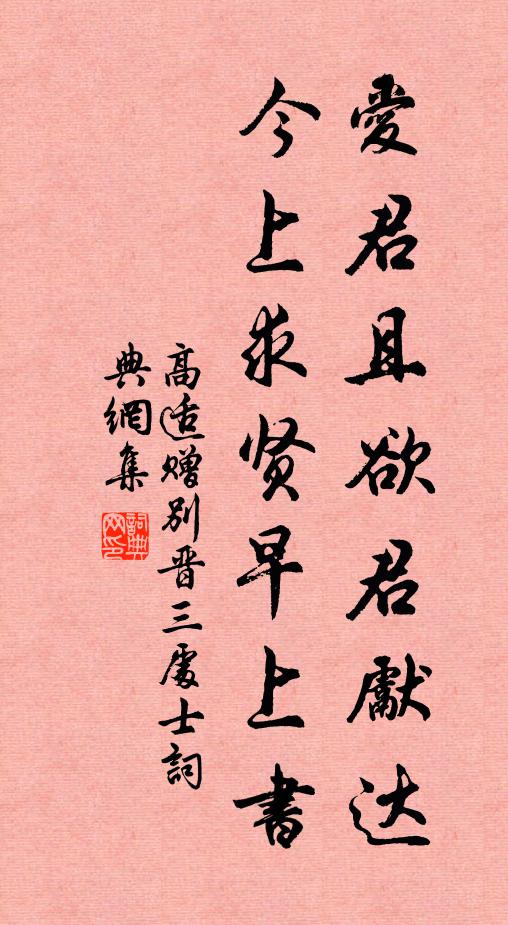 愛君且欲君獻达
今上求贤早上書
高适赠别晋三處士詞
典網集
詞典網印